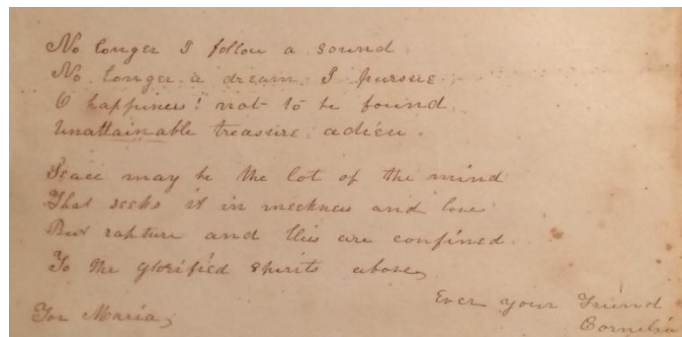 No longer I follow a sound
No longer a dream I pursue
O happiness! not to be found
Unattainable treasure adieu.
Peace may be the lot of the mind
That seeks it in meekness and love
But rapture and bliss are confined
To the glorified spirits above,
Ever your Friend
For Maria, Cornelia